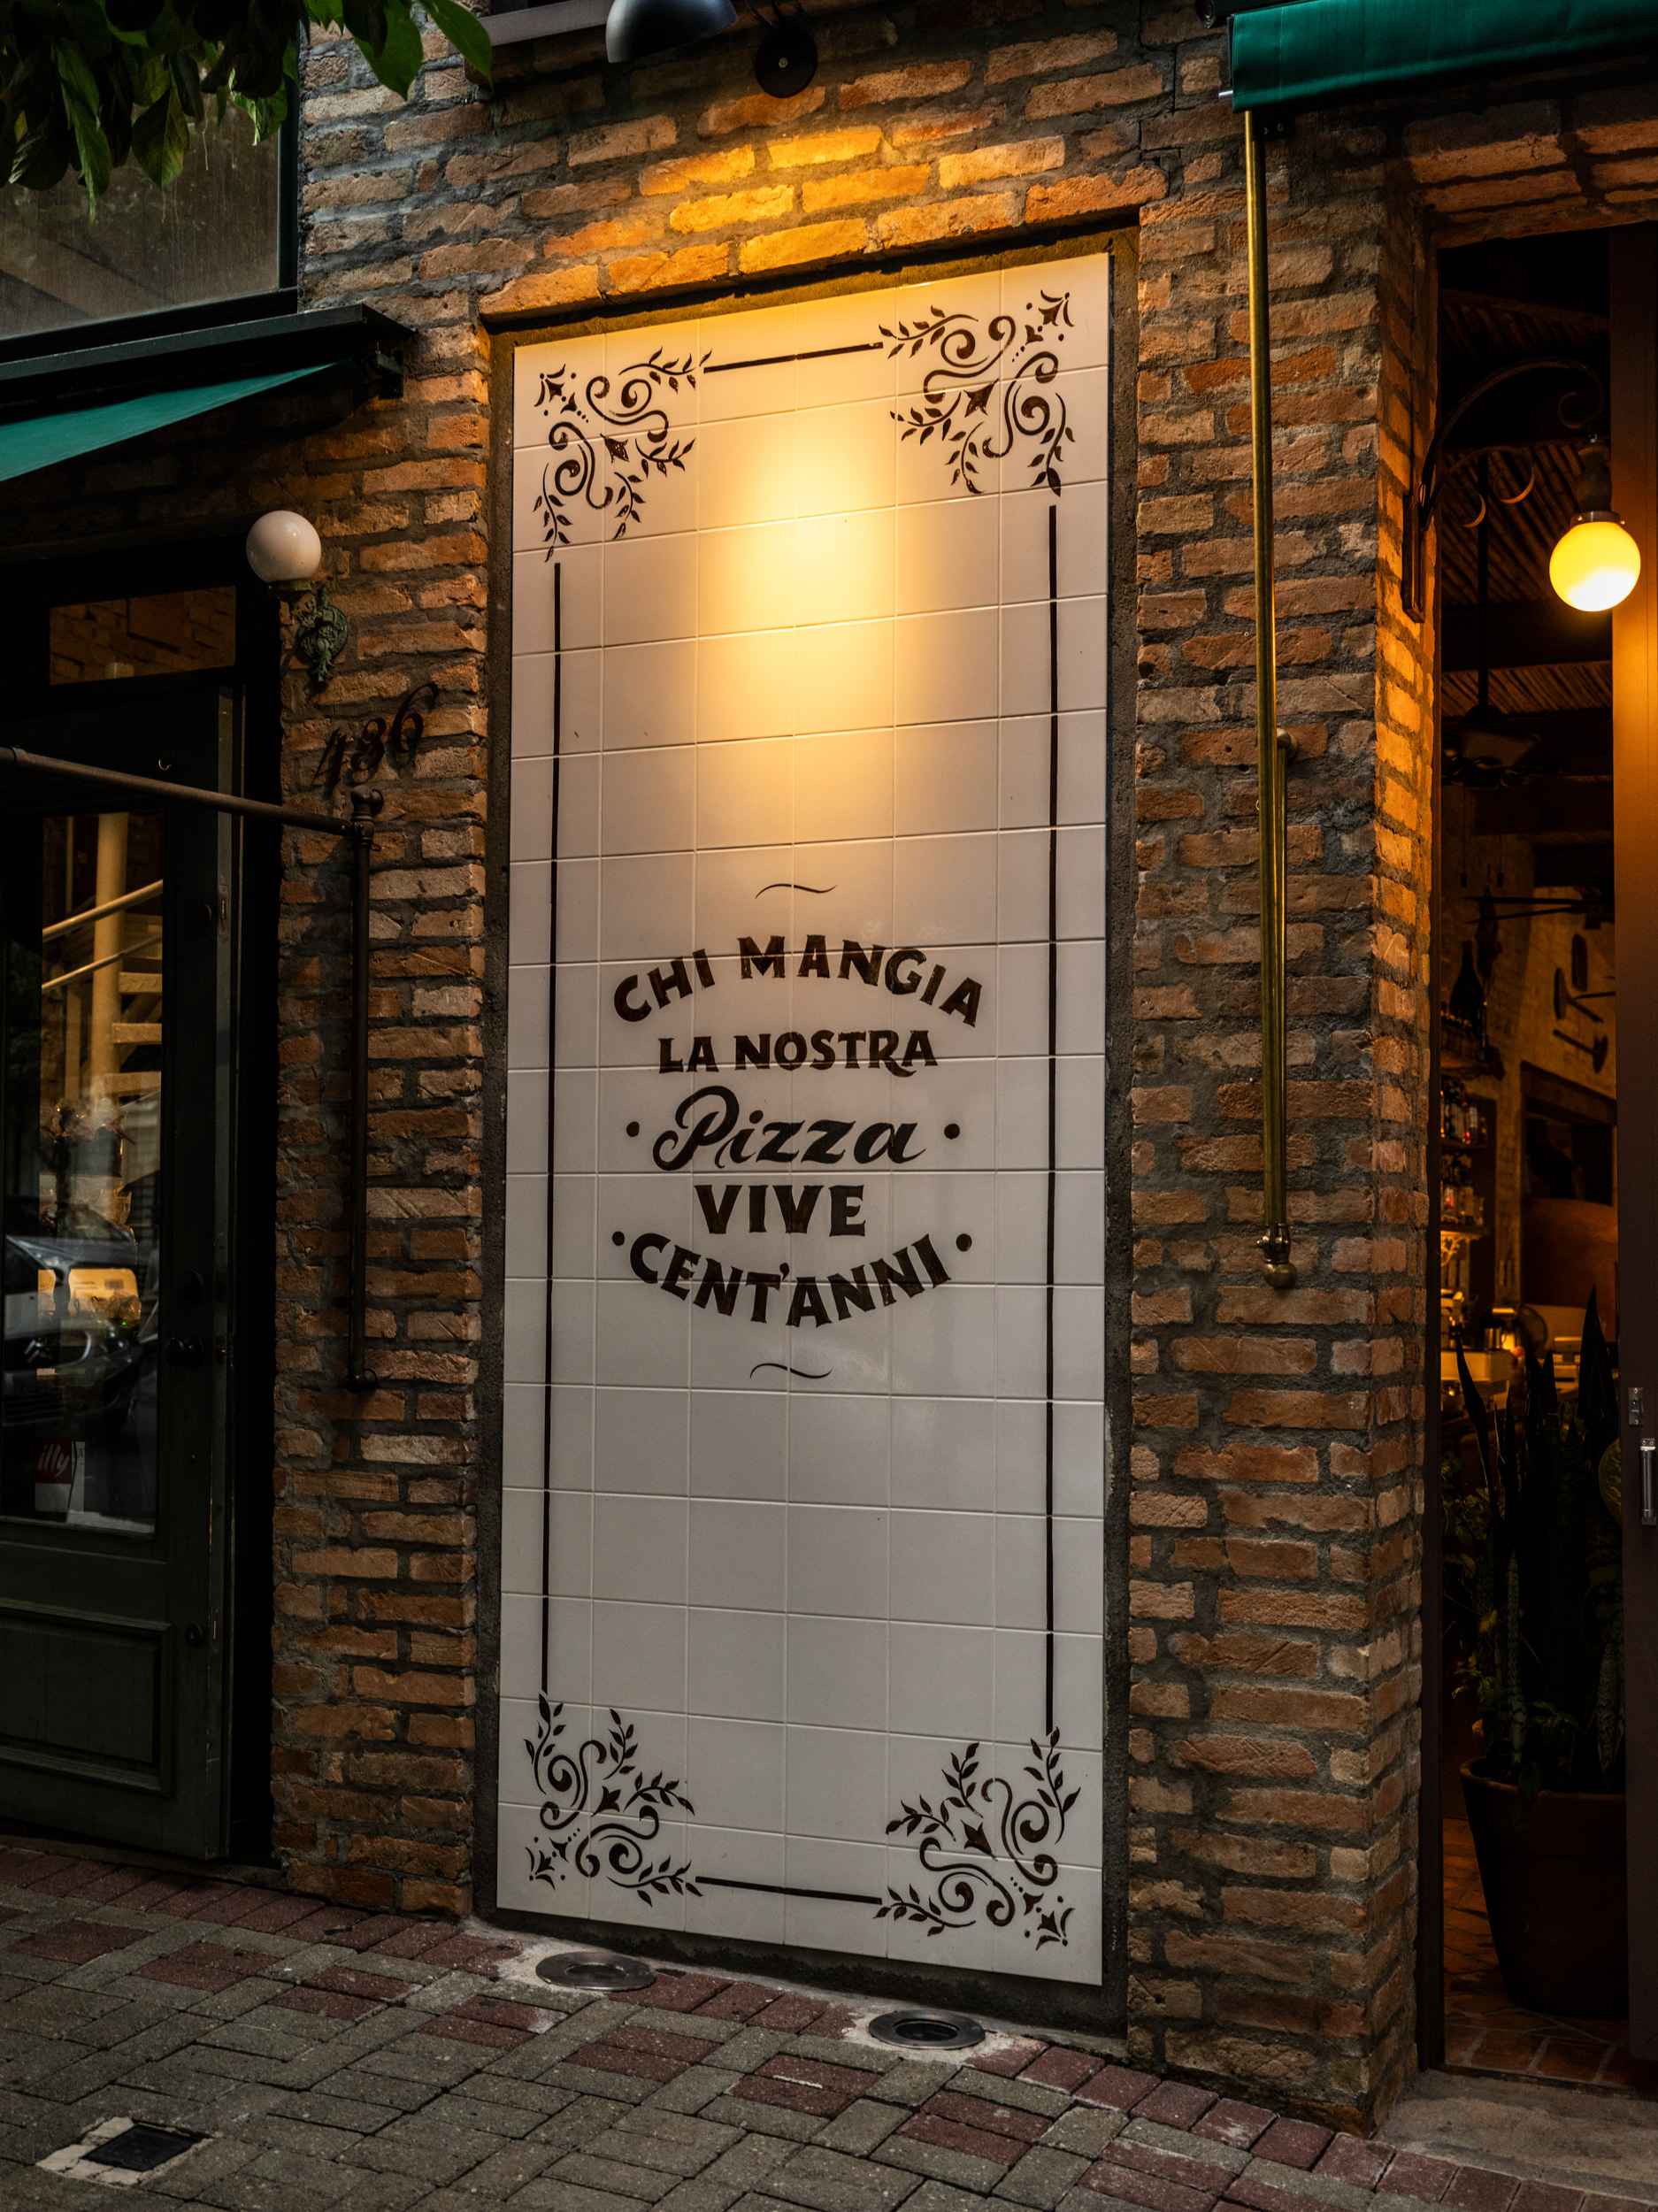 486
CHI MANGIA
LA NOSTRA
• Pizza •
VIVE
• CENT'ANNI •
illy